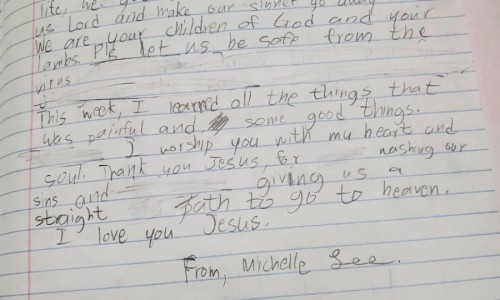 life, he
us Lord and make our sinner go away
We are your children of God and your
lambs. Pls let us be safe from the
virus
This week, I learned all the things that
was painful and some good things.
I worship you with my heart and
soul. Thank you Jesus, for washing our
sins and giving us a
straight path to go to heaven.
I love you Jesus.
From, Michelle See.